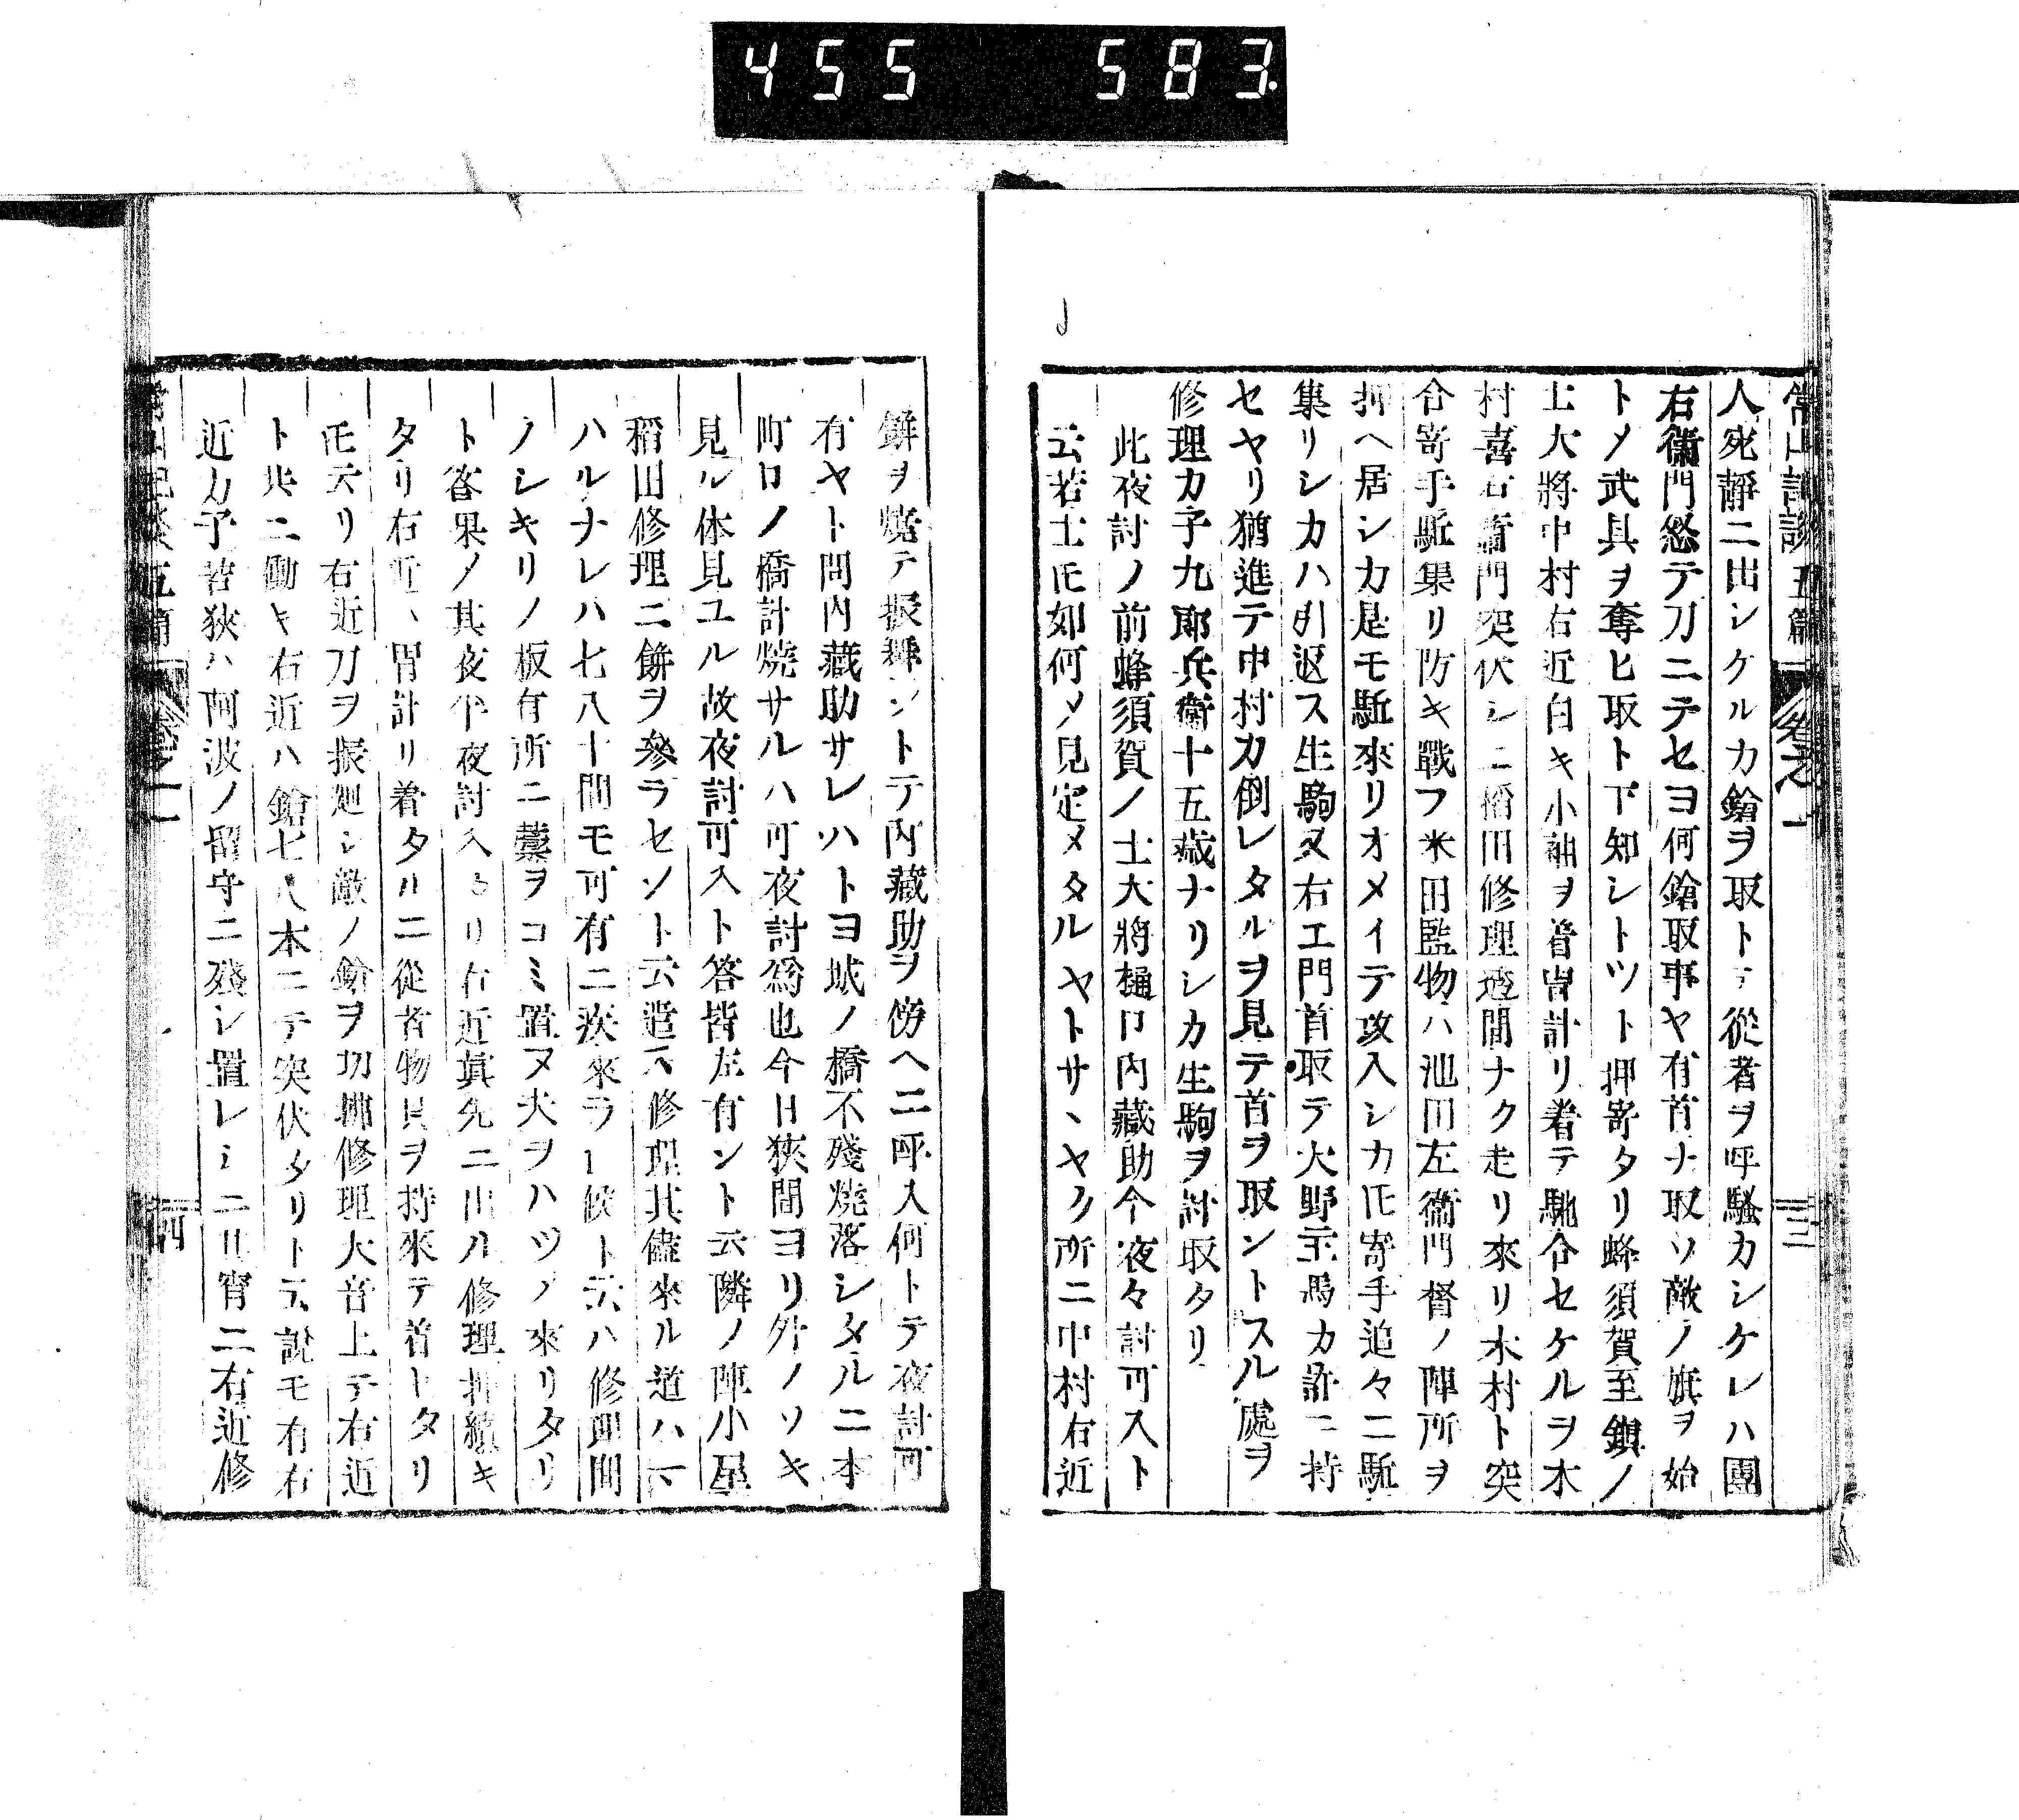 455 583.
常山記談五篇 卷之一 三
人宛靜ニ出シケルカ鎗ヲ取トテ從者ヲ呼騒カシケレハ團
右衞門怒テ刀ニテセヨ何鎗取事ヤ有首ナ取ソ敵ノ旗ヲ始
トメ武具ヲ奪ヒ取ト下知シトツト押寄タリ蜂須賀至鎭ノ
士大將中村右近白キ小袖ヲ着冑計リ着テ馳合セケルヲ木
村喜右衞門突伏シニ稻田修理透間ナク走リ來リ木村ト突
合寄手駈集リ防キ戰フ米田監物ハ池田左衞門督ノ陣所ヲ
押ヘ居シカ是モ駈來リオメイテ攻入シカ𪜈寄手追々ニ駈
集リシカハ引返ス生駒又右エ門首取テ大野主馬カ許ニ持
セヤリ猶進テ中村カ倒レタルヲ見テ首ヲ取ントスル處ヲ
修理カ子九郞兵衞十五歳ナリシカ生駒ヲ討取タリ
此夜討ノ前蜂須賀ノ士大將樋口内藏助今夜々討可入ト
云若士𪜈如何メ見定メタルヤトサヽヤク所ニ中村右近
餠ヲ燒テ振舞ントテ内藏助ヲ傍ヘニ呼入何トテ夜討可
有ヤト問内藏助サレハトヨ城ノ橋不殘燒落シタルニ本
町口ノ橋計燒サルハ可夜討爲也今日狹間ヨリ外ノソキ
見ル体見ユル故夜討可入ト答皆左有ント云隣ノ陣小屋
稻田修理ニ餠ヲ參ラセント云遣ス修理其儘來ル道ハマ
ハルナレハ七八十間モ可有ニ疾來ラレ候ト云ハ修理間
ノシキリノ板有所ニ藁ヲコミ置ヌ夫ヲハヅメ來リタリ
ト答果メ其夜半夜討入タリ右近眞先ニ出ル修理押續キ
タリ右近ハ冑計リ着タルニ從者物具ヲ持來テ着トタリ
𪜈云リ右近刀ヲ振廻シ敵ノ鎗ヲ切拂修理大音上テ右近
ト共ニ働キ右近ハ鎗七八本ニテ突伏タリト云説モ有右
近カ子若狹ハ阿波ノ留守ニ殘シ置レシニ其宵ニ右近修
常山記談五篇 卷之一 四